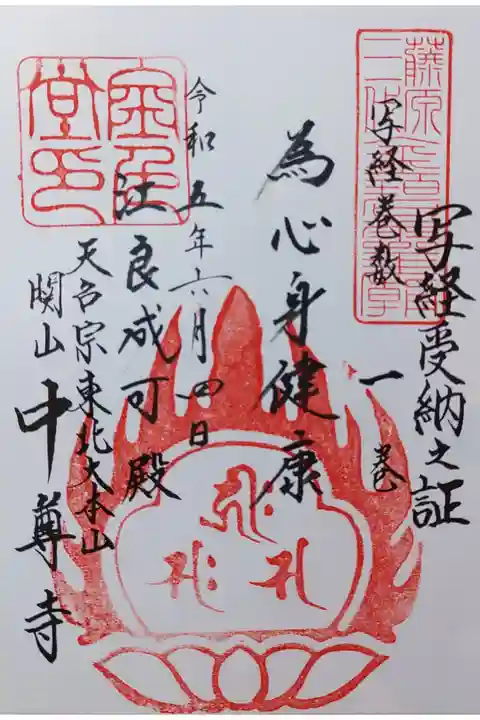 写経受納之証
写経巻数 一巻
為心身健康
令和五年六月四日
江良成可殿
天台宗東北大本山
関山 中尊寺
金色堂印